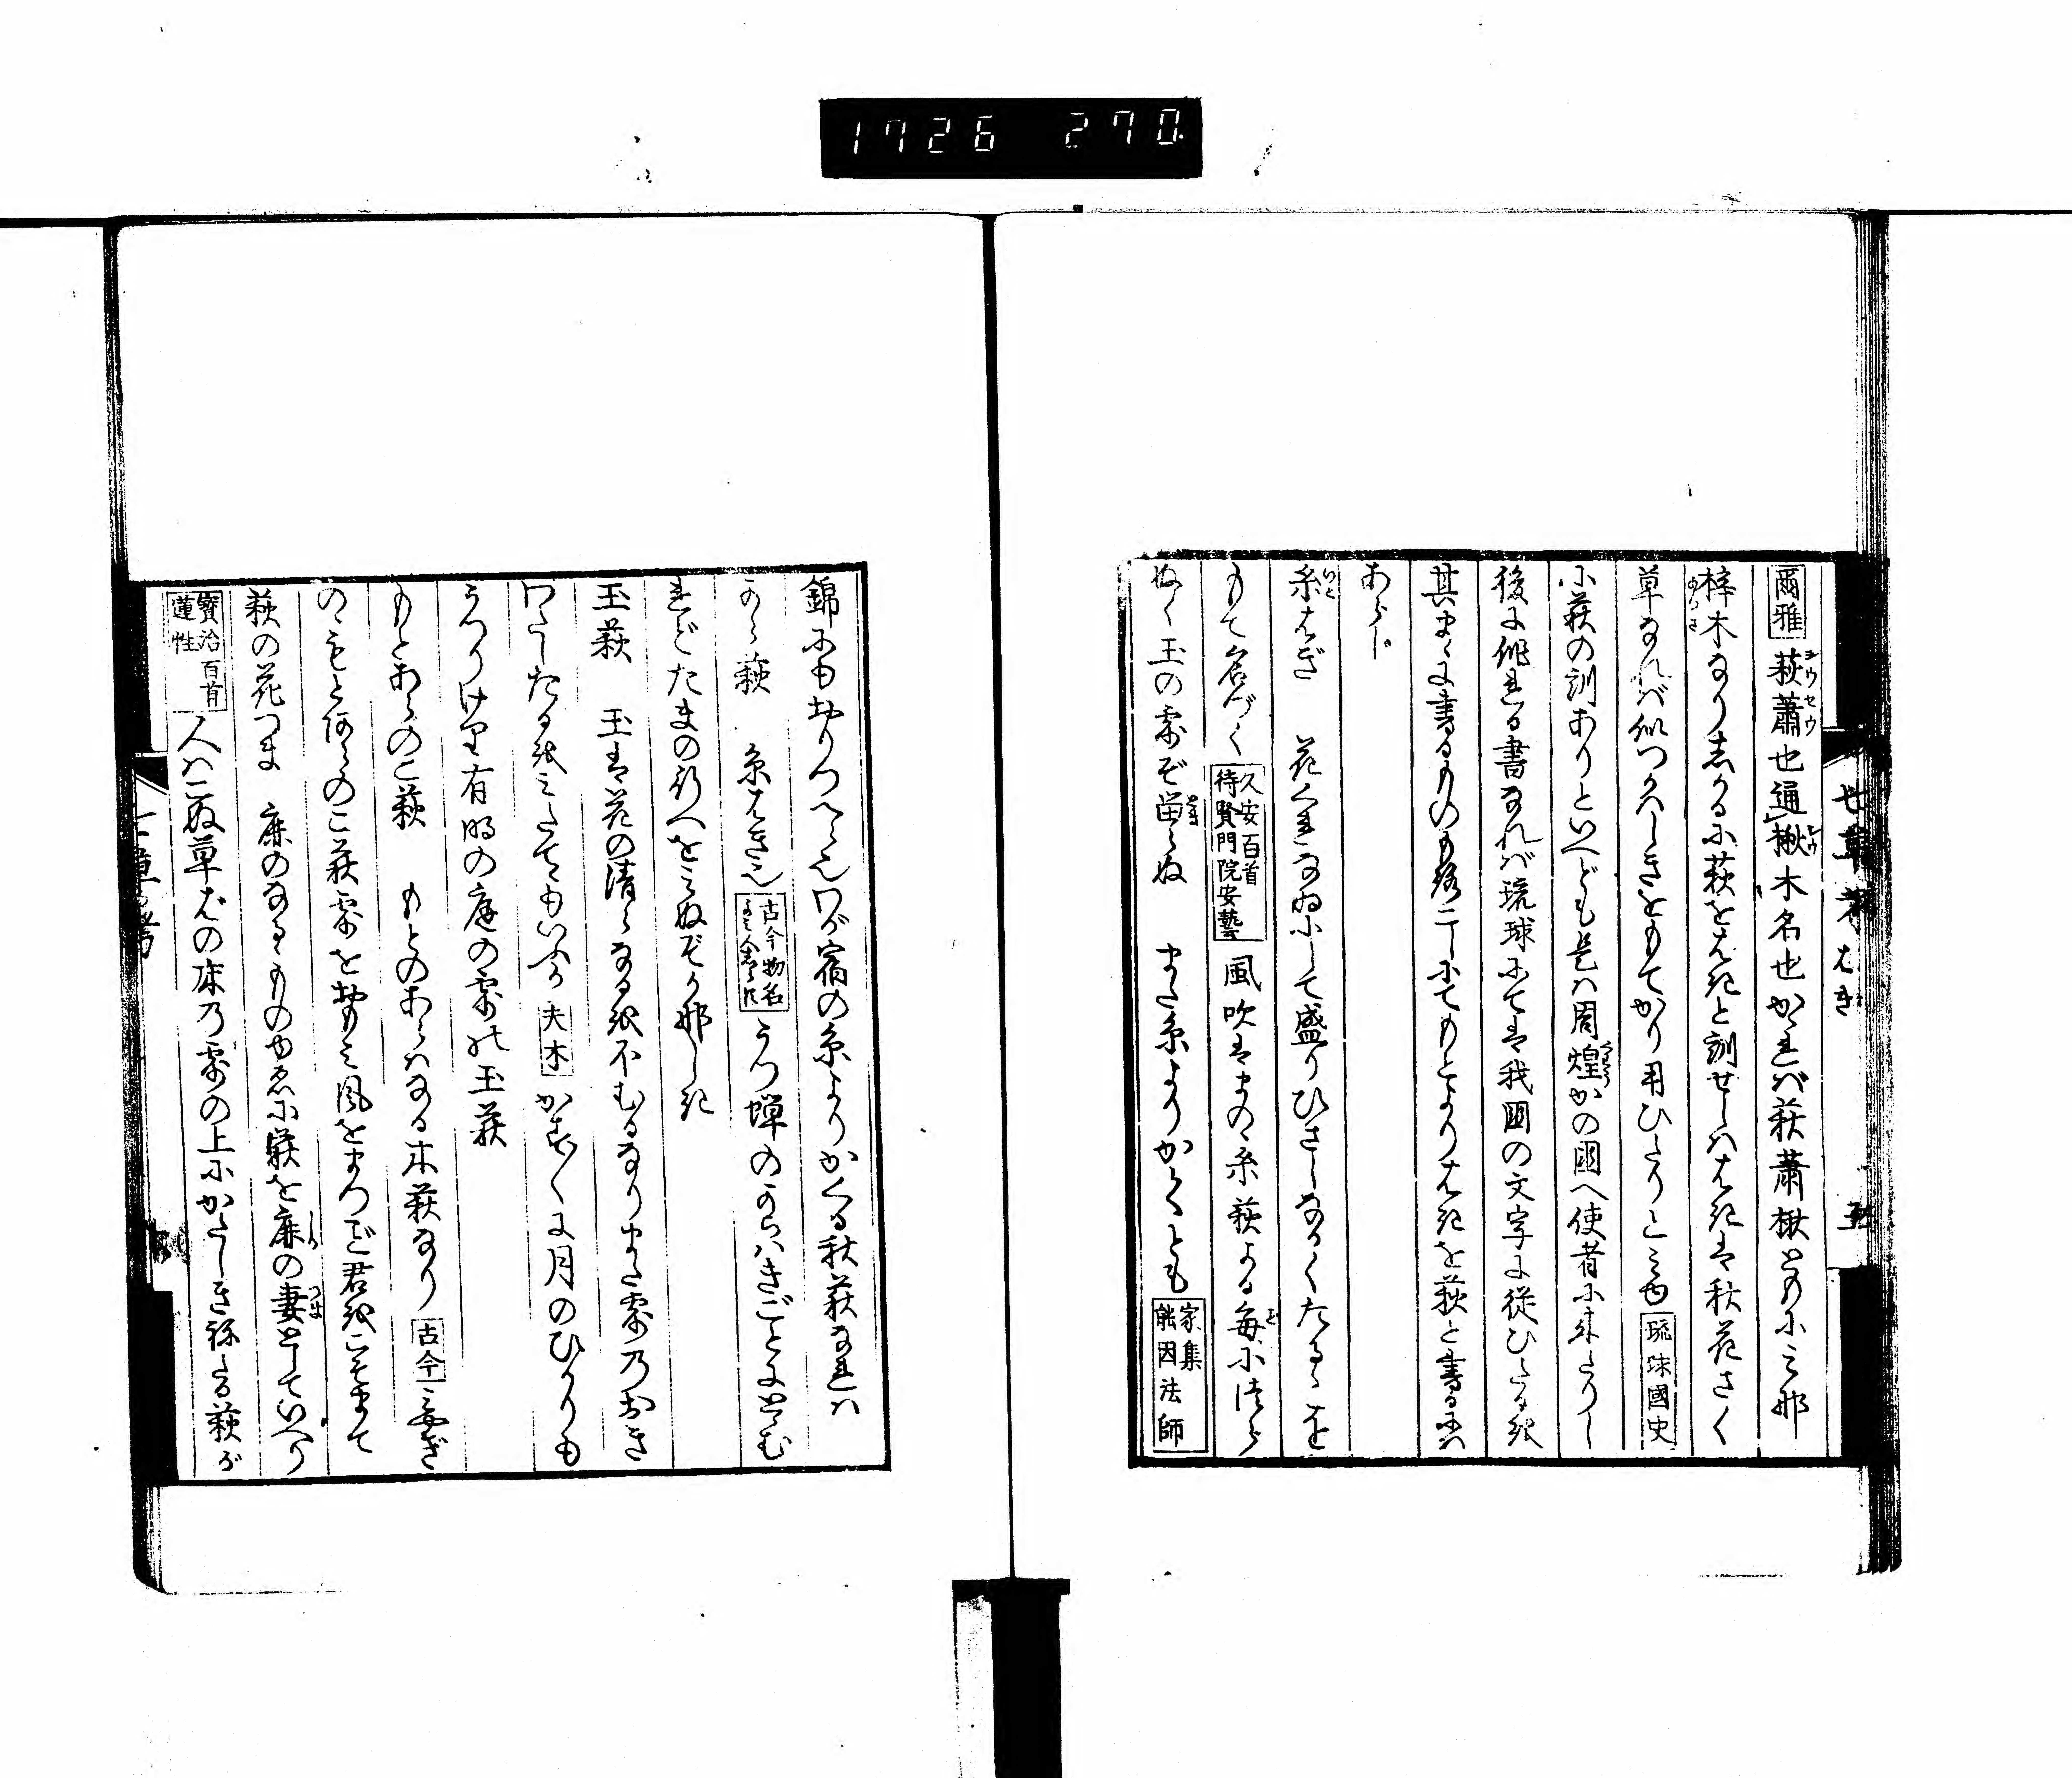 1726 270
七草考 はき 五
爾雅 萩蕭也通楸木名也かゝれば萩蕭楸ともに之那
梓木なりしかるに萩をはきと訓せしははきは秋花さく
草なれば似つかはしきをもてかり用ひたりとみゆ 琉球國史
に萩の訓ありといへども是は周煌かの国へ使者に来たりし
後に作れる書なれば琉球にては我国の文字に従ひたるを
其まゝに書るもの
もとよりはきを萩と書るには
あらじ
糸はぎ 花くれなゐにして盛りひさしなかくたるゝを
もて名づく 久安百首 待賢門院安藝 風吹はまのゝ糸萩よる毎に
ぬく玉の露ぞ留らぬ また糸よりかくとも 家集 能因法師
錦にもおりつへらむわが宿の糸よりかくる秋萩なれは
から萩 糸はき也 古今物名 よみ人しらす うつ蝉のからはきごとにとゞむ
れどたまの行へをみぬぞかなしき
玉萩 玉は花の清らなるをほむるなりまた露のおき
わたしたるをみたてゝもいふか 夫木 かずかずに月のひかりも
うつりけり有明の庭の露の玉萩
もとあらのこ萩 もとのあらはなる木萩なり 古今 みやぎ
のゝもとあらのこ萩露をおもみ風をまつごと君をこそまて
萩の花つま 鹿のなるゝものゆゑに萩を鹿の妻としていへり
寳治百首 蓮性 人はこぬ草はの床の露の上にかたしき侘たる萩が
七草考